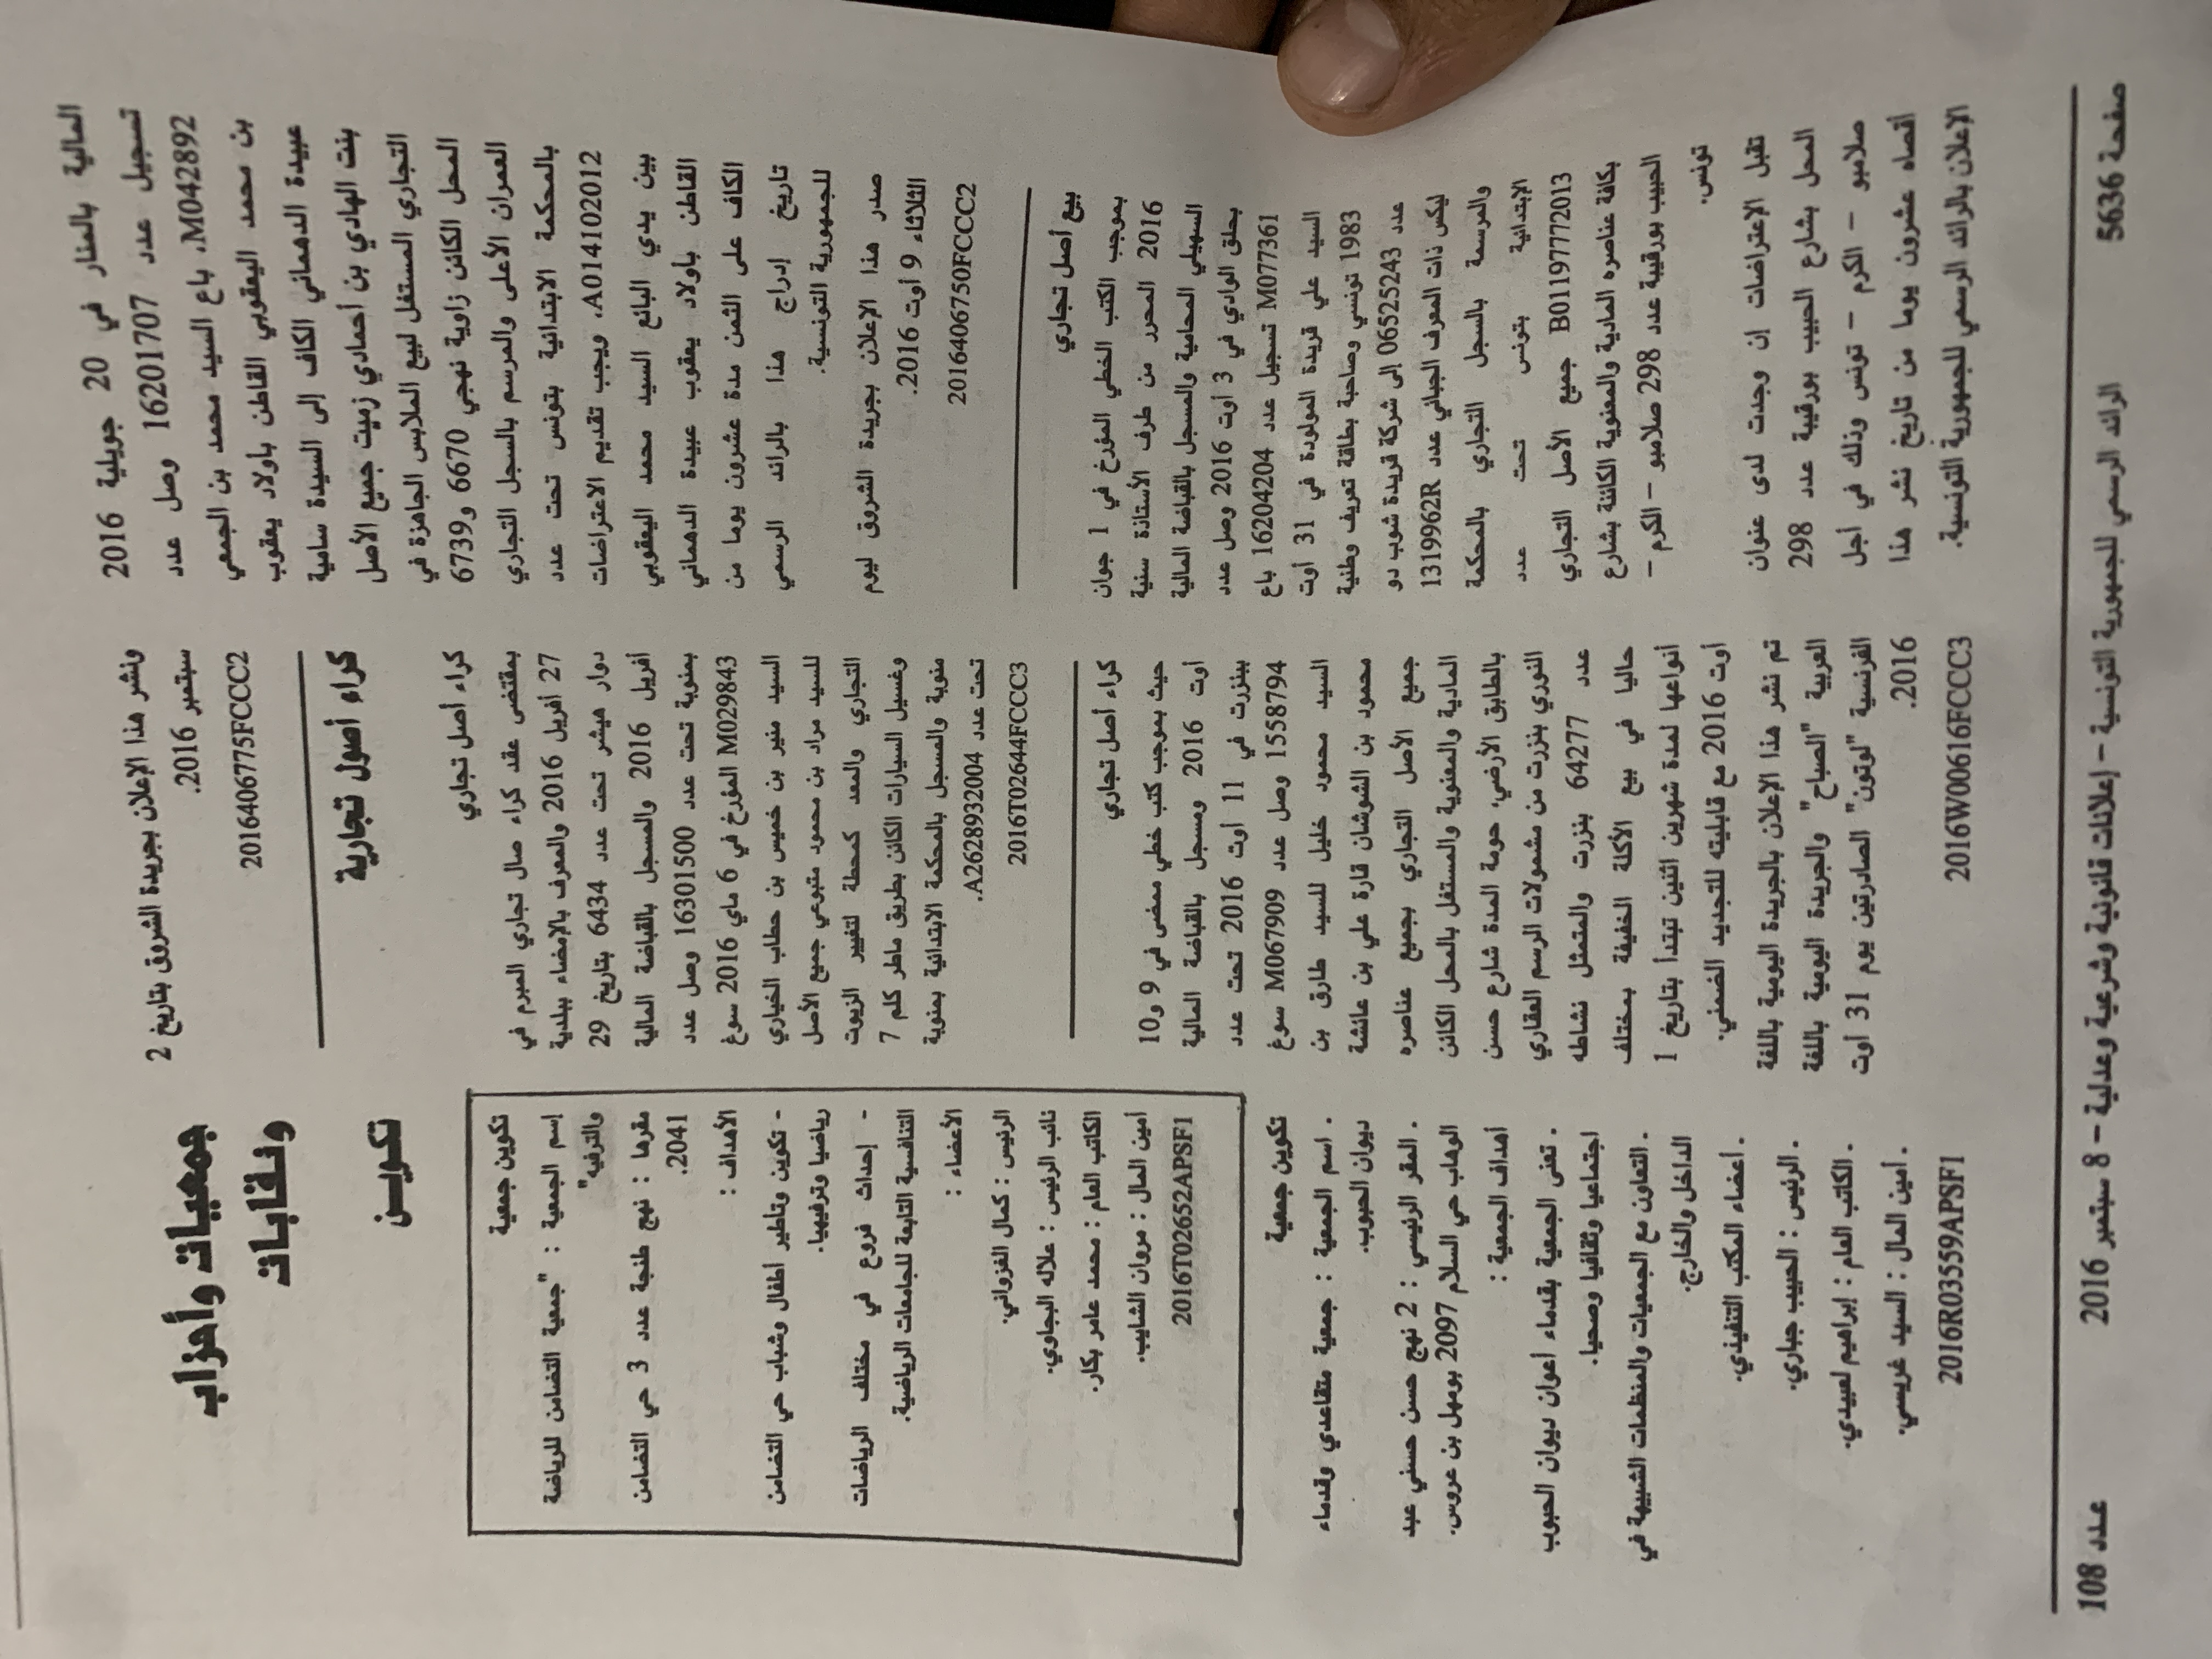 المالية بالمنار في 20 جويلية 2016
تسجيل عدد 16201707 وصل عدد
M042892، باع السيد محمد بن الجمعي
بن محمد اليعقوبي القاطن بأولاد يعقوب
عبيدة الدهماني الكاف إلى السيدة سامية
بنت الهادي بن أحمادي زميت جميع الأصل
التجاري المستغل لبيع الملابس الجاهزة في
المحل الكائن زاوية نهجي 6670 و6739
العمران الأعلى والمرسم بالسجل التجاري
بالمحكمة الابتدائية بتونس تحت عدد
A014102012، ويجب تقديم الاعتراضات
بين يدي البائع السيد محمد اليعقوبي
القاطن بأولاد يعقوب عبيدة الدهماني
الكاف على الثمن مدة عشرون يوما من
تاريخ إدراج هذا بالرائد الرسمي
للجمهورية التونسية.
صدر هذا الإعلان بجريدة الشروق ليوم
الثلاثاء 9 أوت 2016.
2016406750FCCC2
بيع أصل تجاري
بموجب الكتب الخطي المؤرخ في 1 جوان
2016 المحرر من طرف الأستاذة سنية
السهيلي المحامية والمسجل بالقباضة المالية
بحلق الوادي في 3 أوت 2016 وصل عدد
M077361 تسجيل عدد 16204204 باع
السيد علي فريدة المولودة في 31 أوت
1983 تونسي وصاحبة بطاقة تعريف وطنية
عدد 06525243 إلى شركة فريدة شوب دو
ليكس ذات المعرف الجبائي عدد 1319962R
والمرسمة بالسجل التجاري بالمحكمة
الإبتدائية بتونس تحت عدد
B01197772013 جميع الأصل التجاري
بكافة عناصره المادية والمعنوية الكائنة بشارع
الحبيب بورقيبة عدد 298 صلامبو – الكرم –
تونس.
تقبل الإعتراضات إن وجدت لدى عنوان
المحل بشارع الحبيب بورقيبة عدد 298
صلامبو – الكرم – تونس وذلك في أجل
أقصاه عشرون يوما من تاريخ نشر هذا
الإعلان بالرائد الرسمي للجمهورية التونسية.
ونشر هذا الإعلان بجريدة الشروق بتاريخ 2
سبتمبر 2016.
2016406775FCCC2
كراء أصول تجارية
كراء أصل تجاري
بمقتضى عقد كراء صال تجاري المبرم في
27 أفريل 2016 والمعرف بالإمضاء ببلدية
دوار هيشر تحت عدد 6434 بتاريخ 29
أفريل 2016 والمسجل بالقباضة المالية
بمنوبة تحت عدد 16301500 وصل عدد
M029843 المؤرخ في 6 ماي 2016 سوغ
السيد منير بن خميس بن حطاب الخياري
للسيد مراد بن محمود متبوعي جميع الأصل
التجاري والمعد كمحطة لتغيير الزيوت
وغسيل السيارات الكائن بطريق ماطر كلم 7
منوبة والمسجل بالمحكمة الابتدائية بمنوبة
تحت عدد A262893​2004.
2016T02644FCCC3
كراء أصل تجاري
حيث بموجب كتب خطي ممضى في 9 و10
أوت 2016 ومسجل بالقباضة المالية
ببنزرت في 11 أوت 2016 تحت عدد
1558794 وصل عدد M067909 سوغ
السيد محمود خليل للسيد طارق بن
محمود بن الشوشان قارة علي بن عائشة
جميع الأصل التجاري بجميع عناصره
المادية والمعنوية والمستغل بالمحل الكائن
بالطابق الأرضي، حومة المدة شارع حسن
النوري بنزرت من مشمولات الرسم العقاري
عدد 64277 بنزرت والمتمثل نشاطه
حاليا في بيع الأكلة الخفيفة بمختلف
أنواعها لمدة شهرين اثنين تبتدأ بتاريخ 1
أوت 2016 مع قابليته للتجديد الضمني.
تم نشر هذا الإعلان بالجريدة اليومية باللغة
العربية "الصباح" والجريدة اليومية باللغة
الفرنسية "لوتون" الصادرتين يوم 31 أوت
2016.
2016W00616FCCC3
جمعيات وأحزاب
ونقابات
تكويـن
تكوين جمعية
إسم الجمعية : "جمعية التضامن للرياضة
والترفيه"
مقرها : نهج طنجة عدد 3 حي التضامن
2041.
الأهداف :
- تكوين وتأطير أطفال وشباب حي التضامن
رياضيا وترفيهيا.
- إحداث فروع في مختلف الرياضات
التنافسية التابعة للجامعات الرياضية.
الأعضاء :
الرئيس : كمال الغزواني.
نائب الرئيس : علاله البجاوي.
الكاتب العام : محمد عامر بكار.
أمين المال : مروان الشايب.
2016T02652APSF1
تكوين جمعية
. اسم الجمعية : جمعية متقاعدي وقدماء
ديوان الحبوب.
. المقر الرئيسي : 2 نهج حسن حسني عبد
الوهاب حي السلام 2097 بومهل بن عروس.
أهداف الجمعية :
. تعنى الجمعية بقدماء أعوان ديوان الحبوب
اجتماعيا وثقافيا وصحيا.
. التعاون مع الجمعيات والمنظمات الشبيهة في
الداخل والخارج.
. أعضاء المكتب التنفيذي.
. الرئيس : الحبيب جباري.
. الكاتب العام : إبراهيم لعبيدي.
. أمين المال : السيد غريسي.
2016R03559APSF1
صفحة 5636
الرائد الرسمي للجمهورية التونسية – إعلانات قانونية وشرعية وعدلية – 8 سبتمبر 2016
عـدد 108